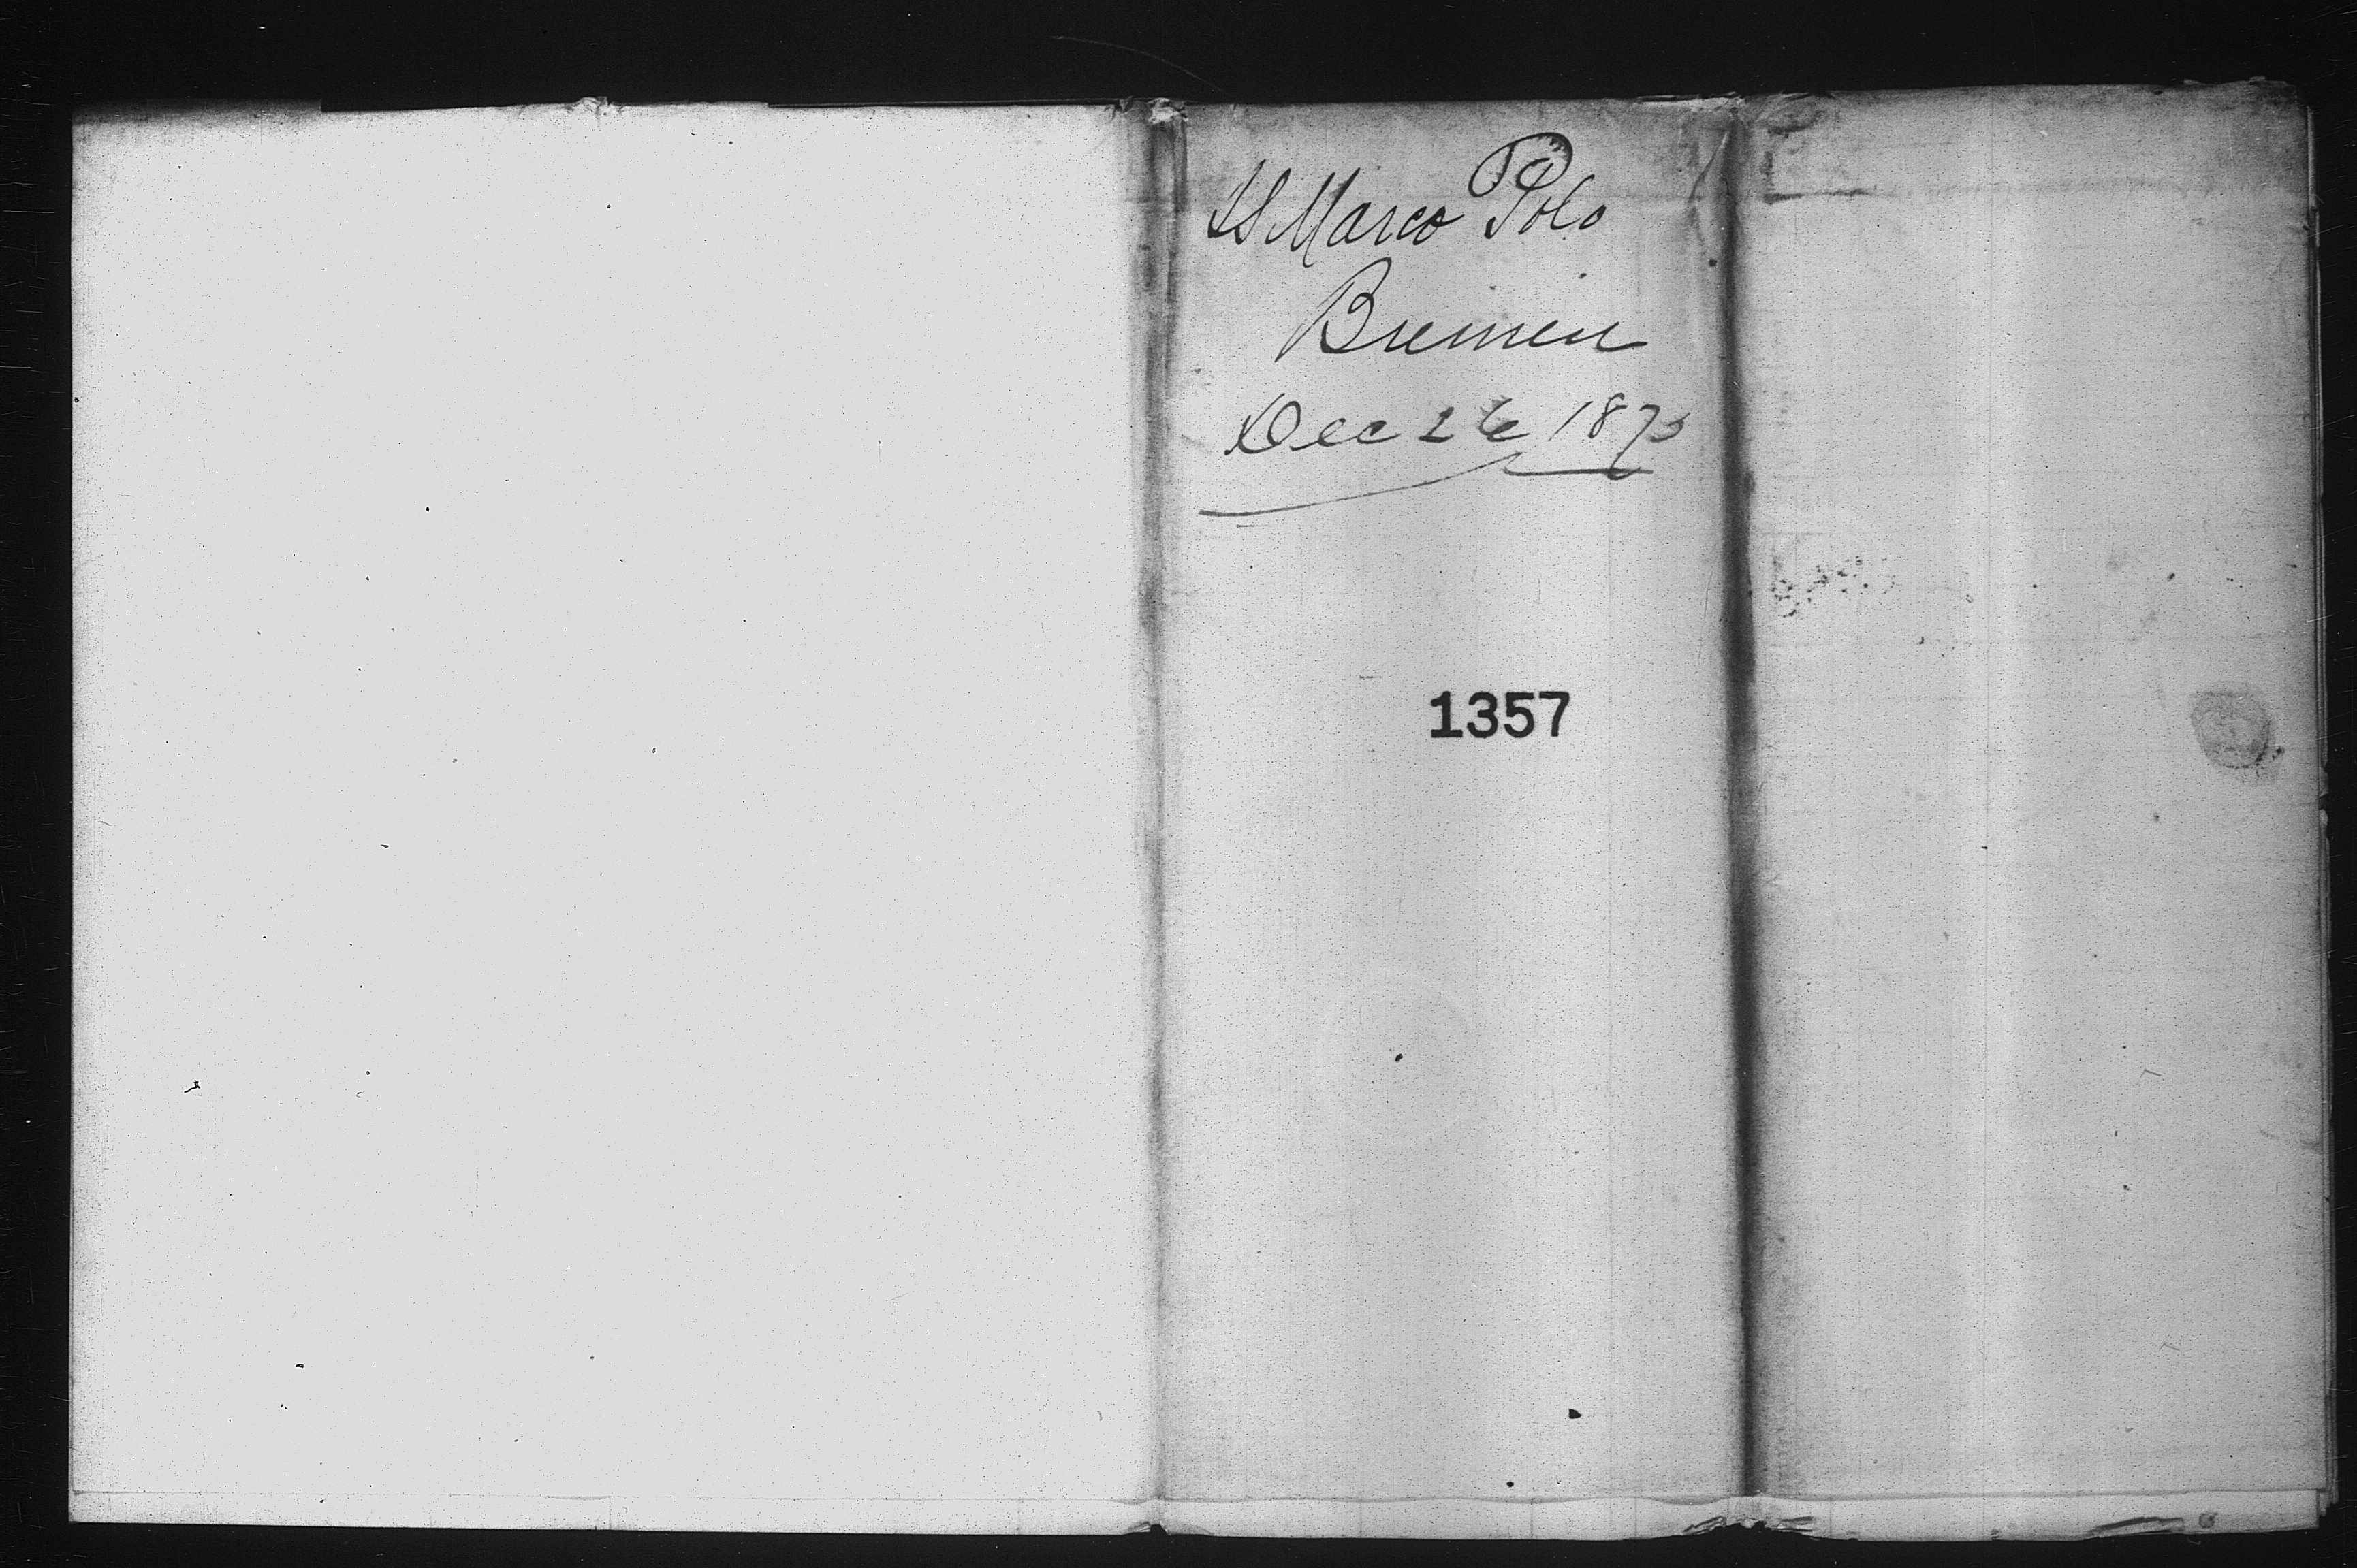 SS Marco Polo
Bremen
Dec 26 1873
1357